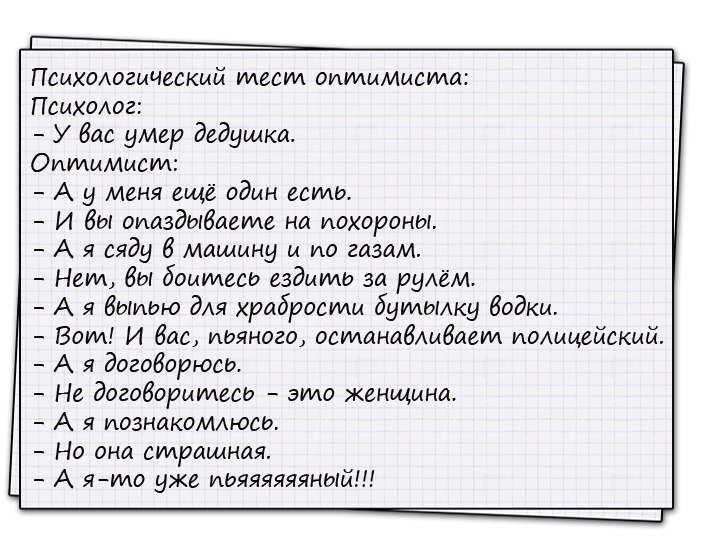 Психологический тест оптимиста:
Психолог:
- У вас умер дедушка.
Оптимист:
- А у меня ещё один есть.
- И вы опаздываете на похороны.
- А я сяду в машину и по газам.
- Нет, вы боитесь ездить за рулём.
- А я выпью для храбрости бутылку водки.
- Вот! И вас, пьяного, останавливает полицейский.
- А я договорюсь.
- Не договоритесь - это женщина.
- А я познакомлюсь.
- Но она страшная.
- А я-то уже пьяяяяяяный!!!